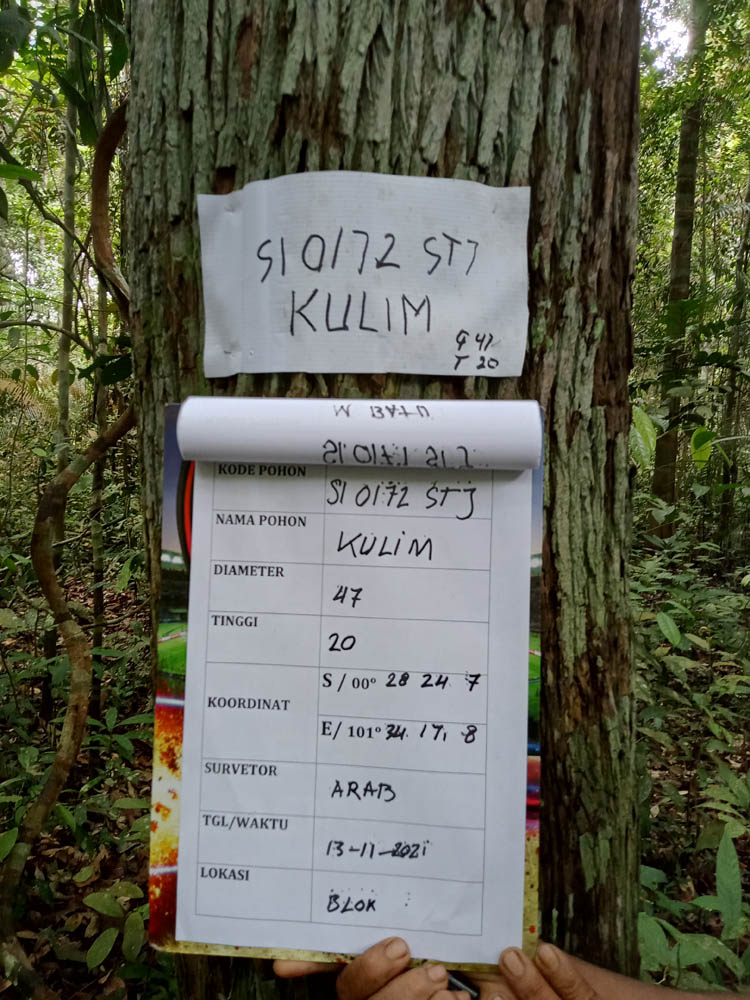 SI 0172 STJ
KULIM
G 47
T 20
W BATU
SI 0171 STJ
KODE POHON SI 0172 STJ
NAMA POHON KULIM
DIAMETER 47
TINGGI 20
KOORDINAT S / 00° 28 24 7
E/ 101° 34. 17, 8
SURVETOR ARAB
TGL/WAKTU 13-11-2021
LOKASI BLOK